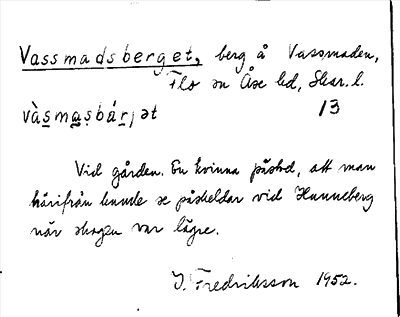 Vassmadsberget, berg å Vassmaden,
Flo sn Åse hd, Skar. l.
vàsmasbár̩jət 13
Vid gården. En kvinna påstod, att man
härifrån kunde se påskeldar vid Hunneberg
när skogen var lägre.
J. Fredriksson 1952.